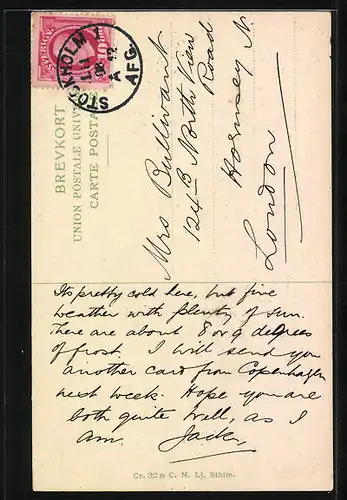 BREVKORT
UNION POSTALE UNIV
CARTE POSTA
SVERIGE
STOCKHOLM 1
AFG.
Mrs Bullivant
124B North View
Road
Hornsey N
London
Its pretty cold here, but fine
weather with plenty of sun.
There are about 8 or 9 degrees
of frost. I will send you
another card from Copenhagen
next week. Hope you are
both quite well, as I
am. Jack,
Cr. 32 C. N. Lj. Sthlm.